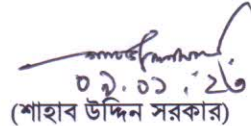 ০৯.০১.২৩
(শাহাব উদ্দিন সরকার)